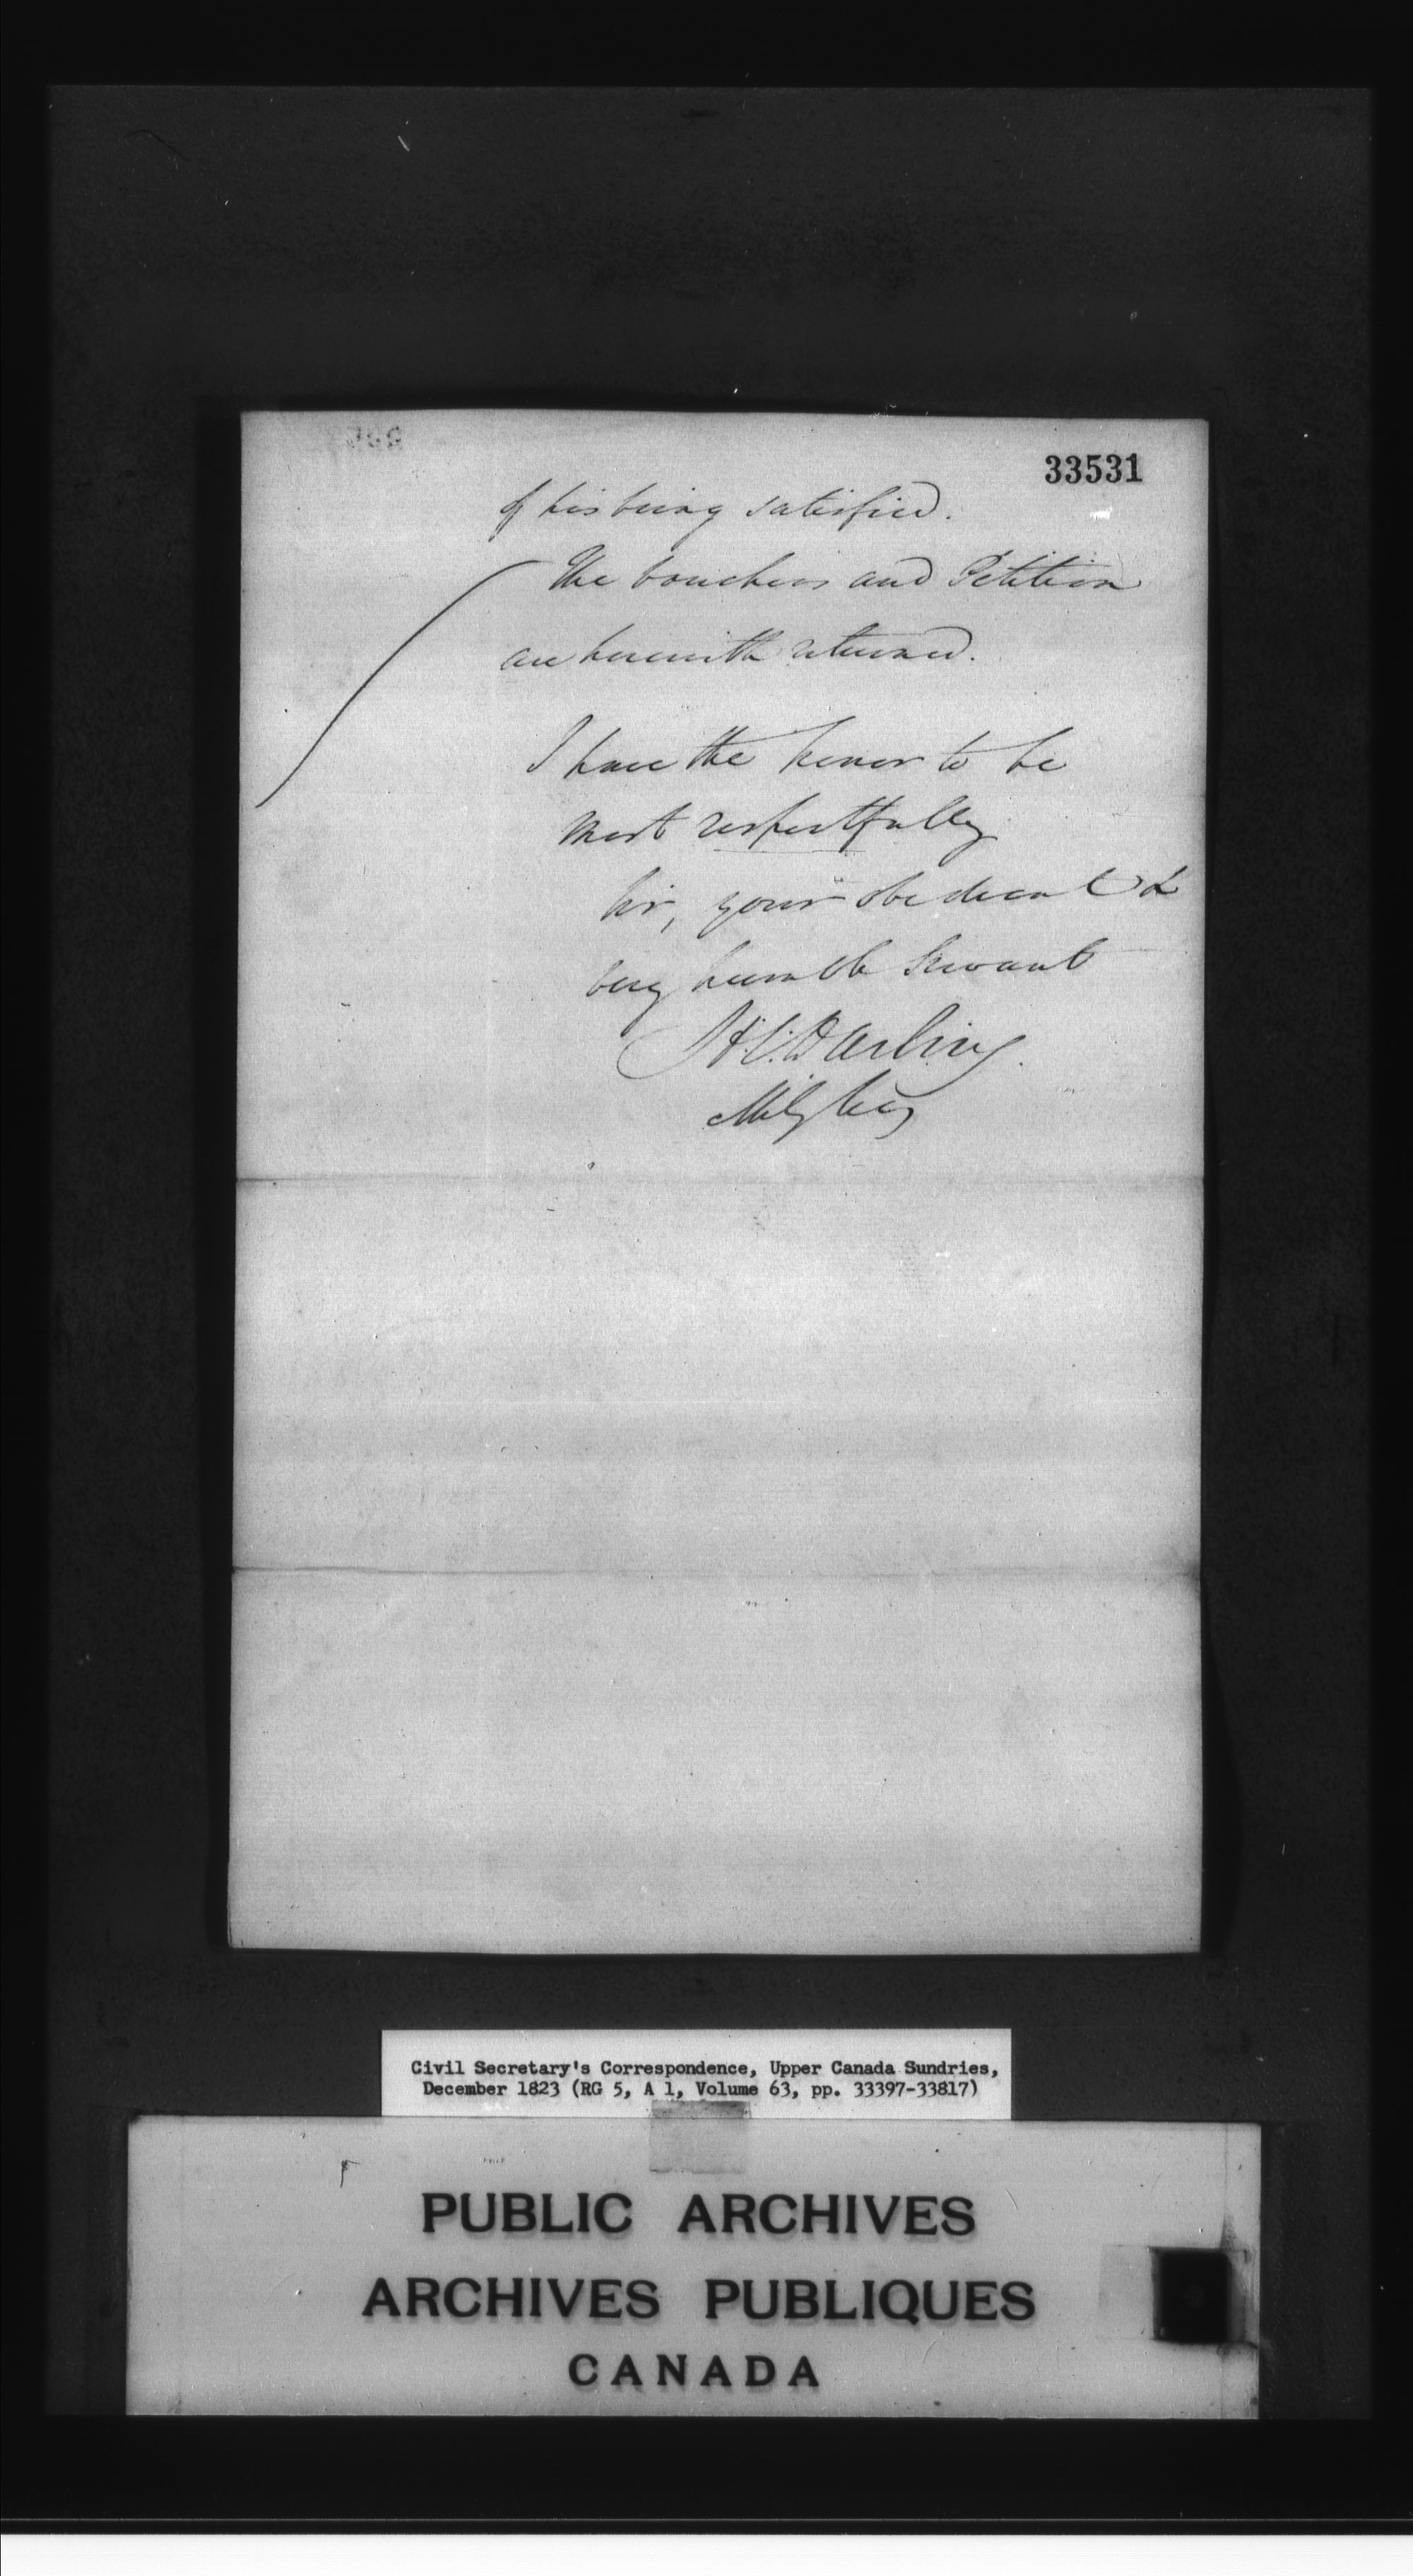 33531
of his being satisfied.
The vouchers and Petition
are herewith returned.
I have the honor to be
most respectfully
Sir, your obedient &
very humble Servant
H.C. Darling.
Mily Secy
Civil Secretary's Correspondence, Upper Canada Sundries,
December 1823 (RG 5, A 1, Volume 63, pp. 33397-33817)
PUBLIC ARCHIVES
ARCHIVES PUBLIQUES
CANADA